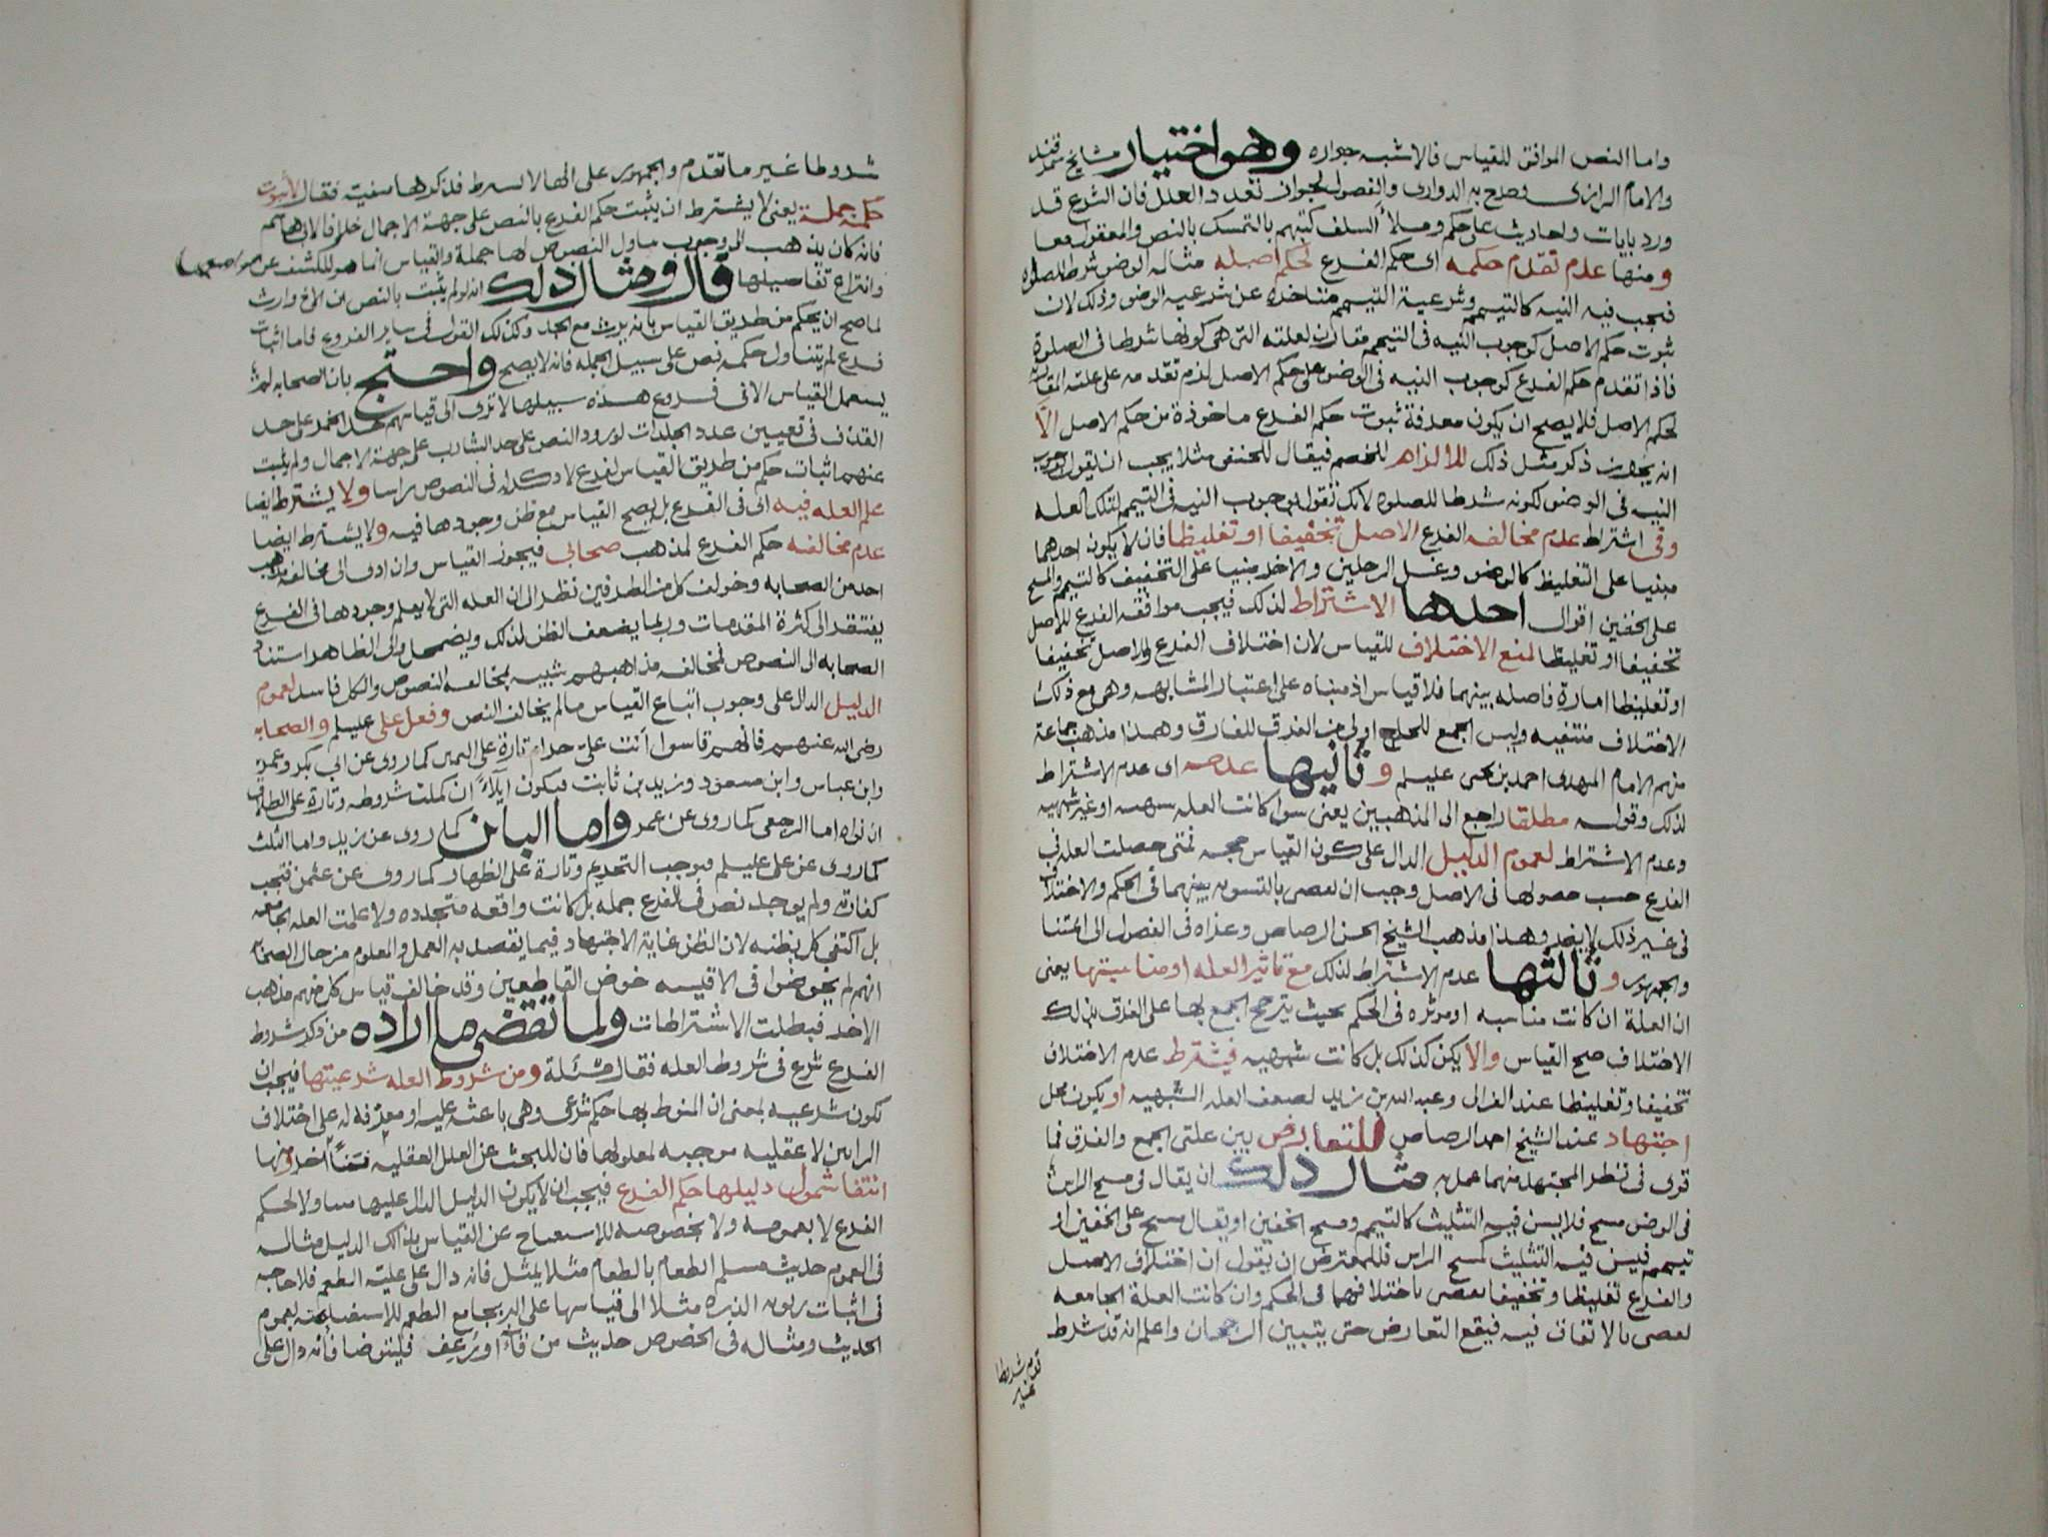 واما النص الموافق للقياس فالاشبه جوازه وهو اختيار مشايخ سمرقند
والامام الرازي وصرح به الدواري والفصول لجواز تعدد العلل فان الشرع قد
ورد بايات واحاديث على حكم وملأ السلف كتبهم بالتمسك بالنص والمعقول معا
ومنها عدم تقدم حكمه اى حكم الفرع لحكم اصله مثاله الوضو شرط للصلوه
فيجب فيه النيه كالتيمم وشرعية التيمم متاخره عن شرعيه الوضو وذلك لان
ثبوت حكم الاصل كوجوب النيه فى التيمم مقارن لعلته التى هى كونها شرطا فى الصلوة
فاذا تقدم حكم الفرع كوجوب النيه فى الوضو على حكم الاصل لزم تقدمه على علته المقارنه
لحكم الاصل فلا يصح ان يكون معرفة ثبوت حكم الفرع ماخوذة من حكم الاصل الاَّ
انه يجوز ذكر مثل ذلك للالزام للخصم فيقال للحنفى مثلا يجب ان تقول بوجوب
النيه فى الوضو لكونه شرطا للصلوه لانك تقول بوجوب النيه فى التيمم لتلك العله
وفى اشتراط عدم مخالفه الفرع الاصل تخفيفا او تغليظا فان لا يكون احدهما
مبنيا على التغليظ كالوضو وغسل الرجلين والاخر مبنيا على التخفيف كالتيمم والمسح
على الخفين اقوال احدها الاشتراط لذلك فيجب موافقه الفرع للاصل
تخفيفا او تغليظا لمنع الاختلاف للقياس لان اختلاف الفرع والاصل تخفيفا
او تغليظا امارة فاصله بينهما فلا قياس اذ مبناه على اعتبار المشابهه وهى مع ذلك
الاختلاف منتفيه وليس الجمع للجامع اولى من الفرق للفارق وهذا مذهب جماعة
منهم الامام المهدى احمد بن يحيى عليلم وثانيها عدمه اى عدم الاشتراط
لذلك وقوله مطلقا راجع الى المذهبين يعنى سوا كانت العله شبهيه او غير شبهيه
وعدم الاشتراط لعموم الدليل الدال على كون القياس حجه فمتى حصلت العله فى
الفرع حسب حصولها فى الاصل وجب ان نقضى بالتسويه بينهما فى الحكم والاختلاف
فى غير ذلك لا يضر وهذا مذهب الشيخ الحسن الرصاص وعزاه فى الفصول الى ائمتنا
والجمهور وثالثها عدم الاشتراط لذلك مع تاثير العله او مناسبتها يعنى
ان العلة ان كانت مناسبه او موثره فى الحكم بحيث يترجح الجمع بها على الفرق بذلك
الاختلاف صح القياس والا يكن كذلك بل كانت شبهيه فيشترط عدم الاختلاف
تخفيفا وتغليظا عند الغزالى وعبد الله بن زيد لضعف العله الشبهيه او يكون محل
اجتهاد عند الشيخ احمد الرصاص للتعارض بين علتى الجمع والفرق فما
قوى فى نظر المجتهد منهما عمل به مثال ذلك ان يقال فى مسح الراس
فى الوضو مسح فلا يسن فيه التثليث كالتيمم ومسح الخفين او يقال مسح على الخفين او
تيمم فيسن فيه التثليث كمسح الراس فللمعترض ان يقول ان اختلاف الاصل
والفرع تغليظا وتخفيفا يقضى باختلافهما فى الحكم وان كانت العلة الجامعه
تقضى بالاتفاق فيه فيقع التعارض حتى يتبين الرجحان واعلم انه قد شرط
قوم شروطا
غير
شروطا غير ما تقدم والجمهور على انها لا تشترط فذكرها منفية فقال لا ثبوت
حكمه جملة يعنى لا يشترط ان يثبت حكم الفرع بالنص على جهة الاجمال خلافا لابى هاشم
فانه كان يذهب الى وجوب تناول النصوص لها جملة والقياس انما هو للكشف عن مواضعها
وانتزاع تفاصيلها قال ومثال ذلك انه لو لم يثبت بالنص ان الاخ وارث
لما صح ان يحكم من طريق القياس بانه يرث مع الجد وكذلك القول فى ساير الفروع فاما اثبات
فرع لم يتناول حكمه نص على سبيل الجمله فانه لا يصح واحتج بان الصحابه لم
يستعمل القياس الا فى فروع هذه سبيلها الا ترى الى قياسهم حد الخمر على حد
القذف فى تعيين عدد الجلدات لورود النص على حد الشارب على جهة الاجمال ولم يثبت
عنهم اثبات حكم من طريق القياس لفرع لا ذكر له فى النصوص راسا ولا يشترط ايضا
علم العله فيه اى فى الفرع بل يصح القياس مع ظن وجودها فيه ولا يشترط ايضا
عدم مخالفه حكم الفرع لمذهب صحابى فيجوز القياس وان ادى الى مخالفة مذهب
احد من الصحابه وخولف كل من الطرفين نظرا الى ان العله التى لا يعلم وجودها فى الفرع
يفتقر الى كثرة المقدمات وربما يضعف الظن لذلك ويضمحل والى الظاهر استناد
الصحابه الى النصوص فمخالفه مذاهبهم شبيه بمخالفه النصوص والكل فاسد لعموم
الدليل الدال على وجوب اتباع القياس ما لم يخالف النص وفعل على عليلم والصحابه
رضى الله عنهم فانهم قاسوا انت على حرام تارة على اليمين كما روى عن ابى بكر وعمر
وابن عباس وابن مسعود وزيد بن ثابت فيكون ايلاءً ان كملت شروطه وتارة على الطلاق
ان نواه اما الرجعى كما روى عن عمر واما الباين كما روى عن زيد واما الثلث
كما روى عن على عليلم فيوجب التحريم وتارة على الظهار كما روى عن عثمن فتجب
كفارته ولم يوجد نص فى الفرع جمله بل كانت واقعه متجدده ولا علمت العله الجامعه
بل اكتفى كل بظنه لان الظن غاية الاجتهاد فيما يقصد به العمل والمعلوم من حال الصحابه
انهم لم يخوضوا فى الاقيسه خوض القاطعين وقد خالف قياس كل منهم مذهب
الاخر فبطلت الاشتراطات ولما تقضى ما اراده من ذكر شروط
الفرع شرع فى شروط العله فقال مسئلة ومن شروط العله شرعيتها فيجب ان
تكون شرعيه بمعنى ان المنوط بها حكم شرعى وهى باعثه عليه او معرفه له على اختلاف
الرايين لا عقليه موجبه لمعلولها فان للبحث عن العلل العقليه فنًّا اخر ومنها
انتفا شمول دليلها حكم الفرع فيجب ان لا يكون الدليل الدال عليها متناولا لحكم
الفرع لا بعمومه ولا بخصوصه للاستغناء عن القياس بذلك الدليل مثاله
فى العموم حديث مسلم الطعام بالطعام مثلا بمثل فانه دال على علية الطعم فلا حاجه
فى اثبات ربويه الذره مثلا الى قياسها على البر بجامع الطعم للاستغناء عنه بعموم
الحديث ومثاله فى الخصوص حديث من قآء او رَعِف فليتوضا فانه دال على